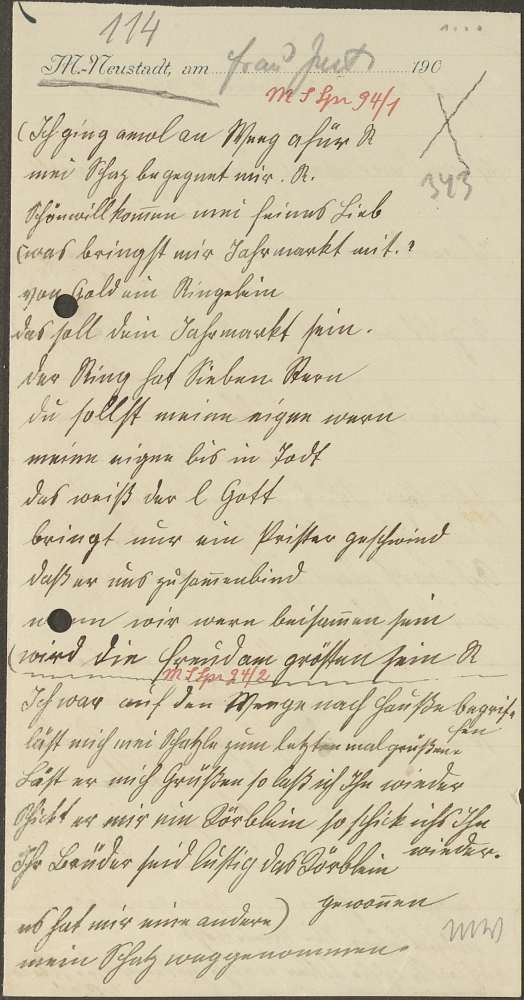 114
M.-Neustadt, am Frau 190
M S Spr 94/1
(Ich ging amol an Weeg afür R
mei Schaz begegnet mir. R.
Schönwillkommen mei feines Lieb
(was bringst mir Jahrmarkt mit.?
von Gold ein Ringelein
das soll dein Jahrmarkt sein.
der Ring hat Sieben Stern
du sollst meine eigne wern
meine eigne bis in Todt
das weiß der l Gott
bringt nur ein Prister geschwind
daß er uns zusammenbind
wir wern beisammen sein
(wird die Freud am größten sein R
343
M S Spr 94/2
Ich war auf den Weege nach Hauße begrif-
fen
läst mich mei Schatzle zum letzten mal grüßen.
Läst er mich Grüßen so laß ich Ihn wieder
Schickt er mir ein Körblein so schick ichs Ihn
wieder.
Ihr Brüder seid lustig das Körblein
gewonnen
es hat mir eine andere)
mein Schatz weggenommen.
MW